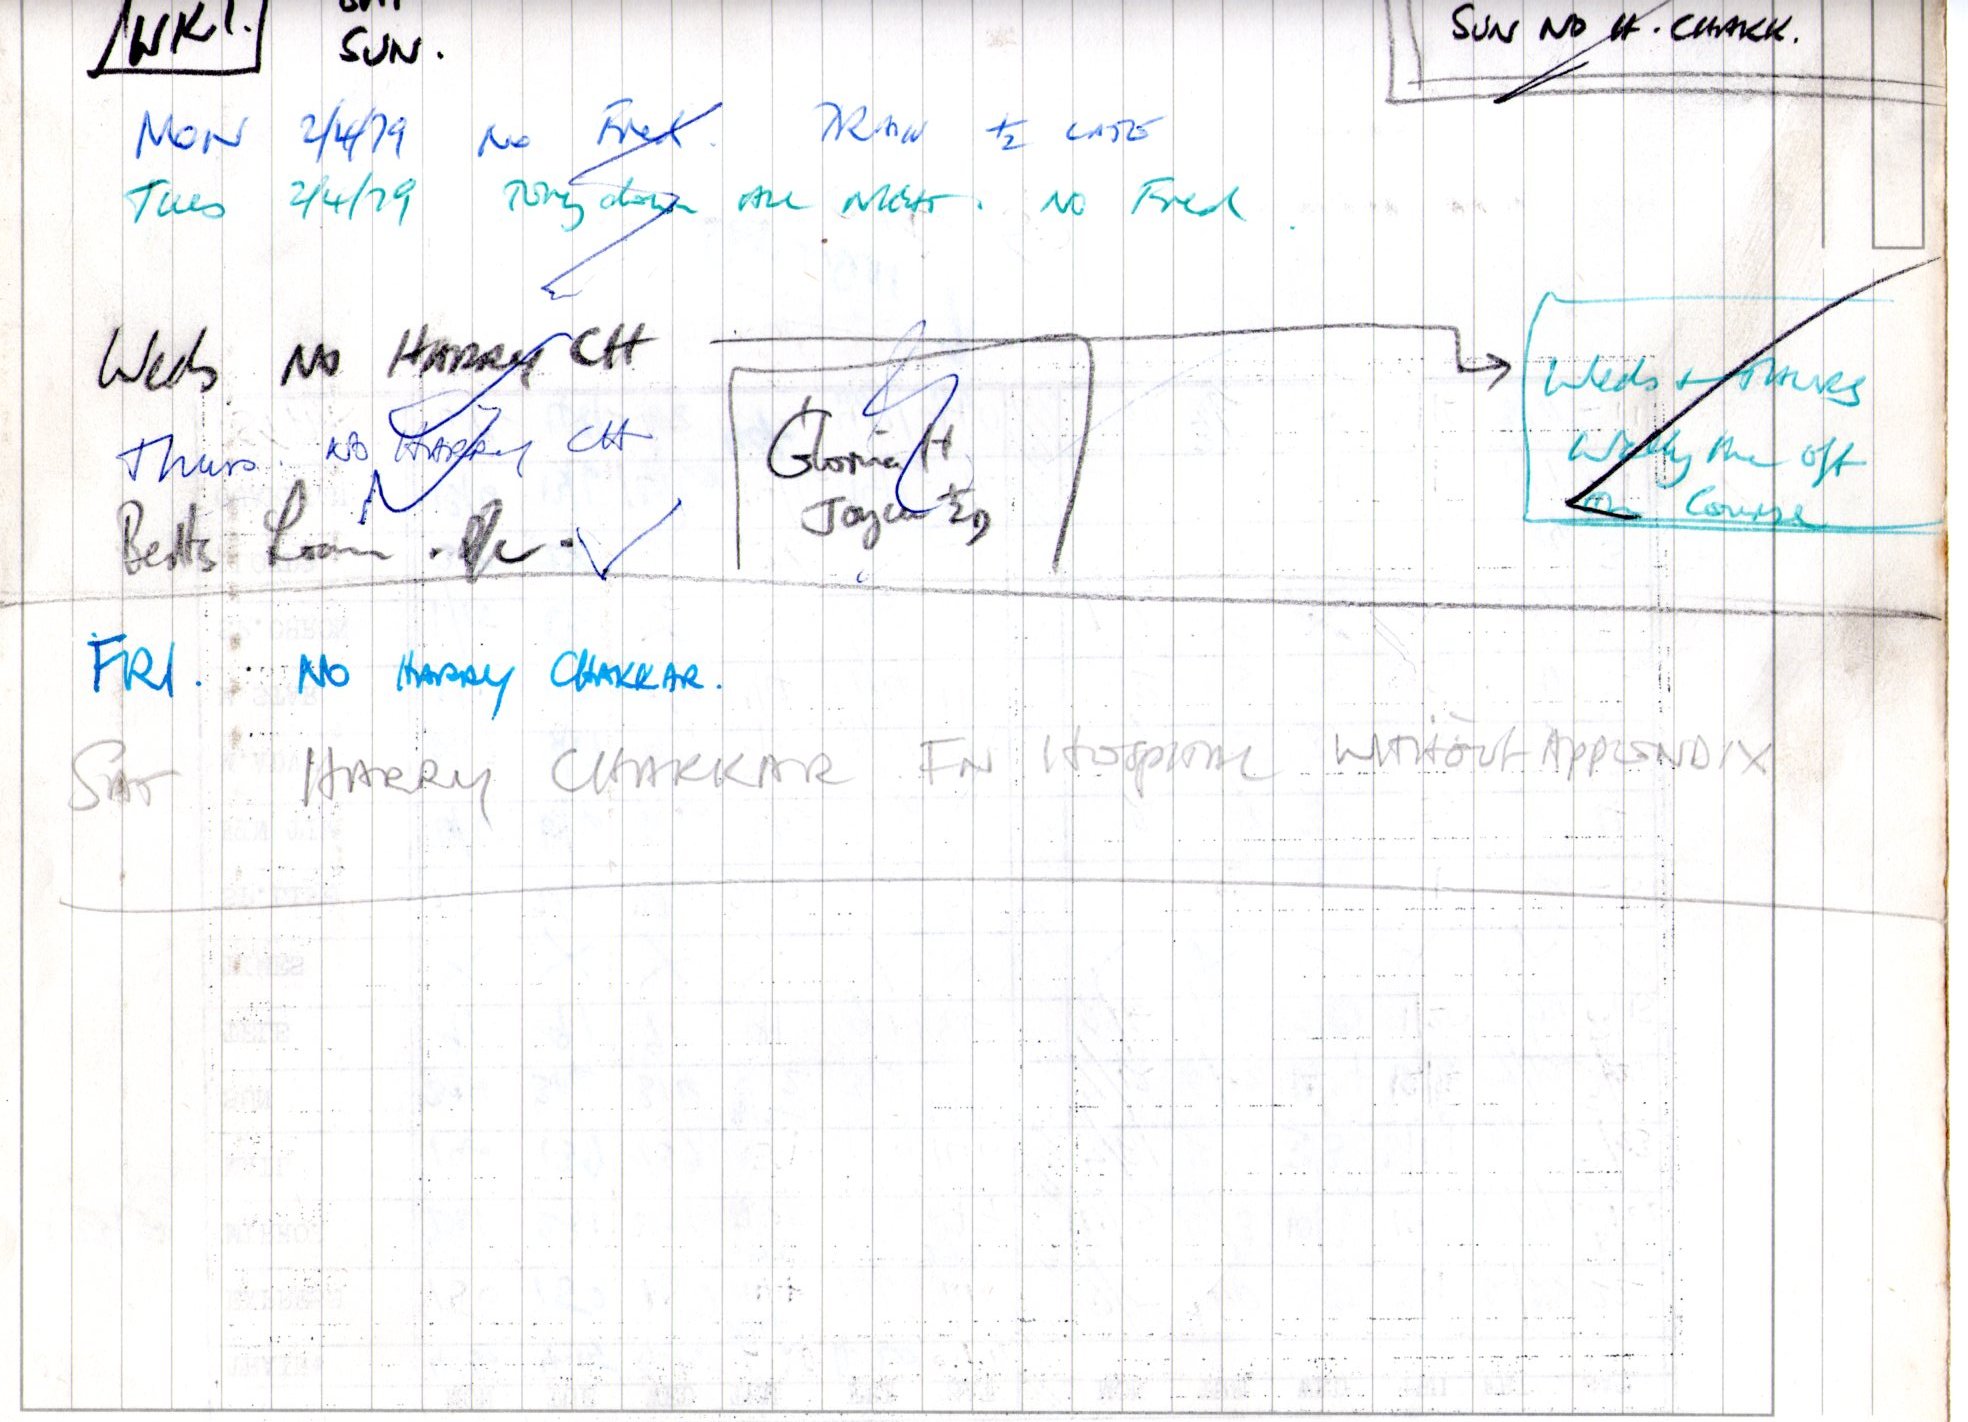 WK1.
SAT
SUN.
SUN NO H. CHAKK.
MON 2/4/79 No Fred. ½ LATE
Tues 2/4/79 down ALL NIGHT. NO Fred.
Weds NO HARRY CH
Thurs. NO HARRY CH
Betts Loan.
Gloria H
Joyce ½
Weds + THURS
Wally off
On Course
FRI. NO HARRY CHAKKAR.
SAT HARRY CHAKKAR IN HOSPITAL WITHOUT APPENDIX